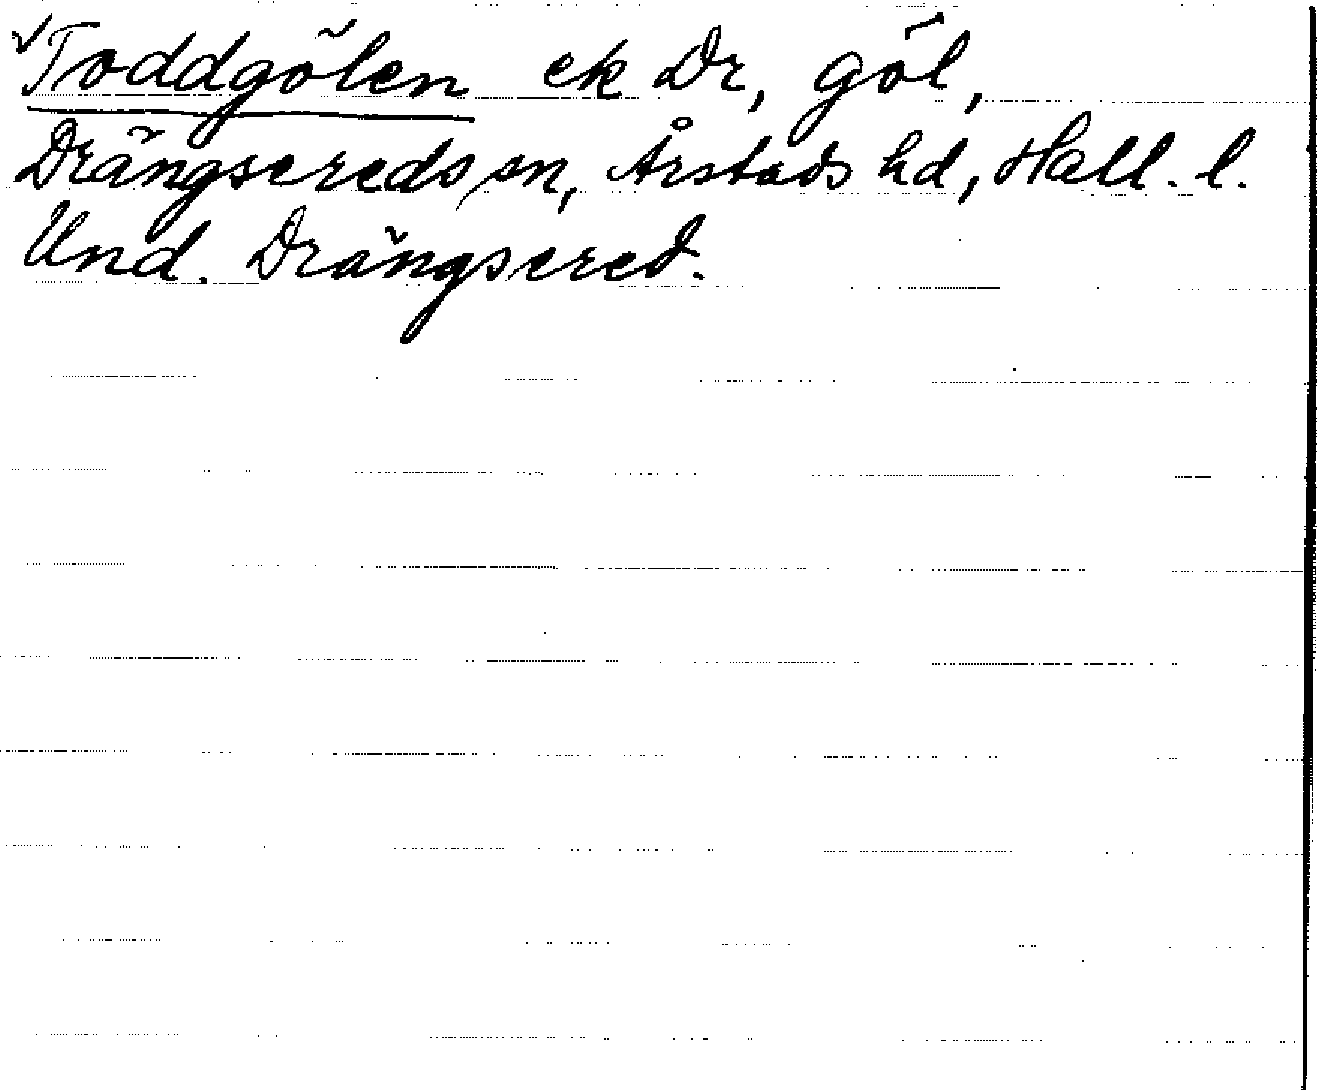 √Toddgölen ek Dr, göl,
Drängsereds sn, Årstads hd, Hall. l.
Und. Drängsered.